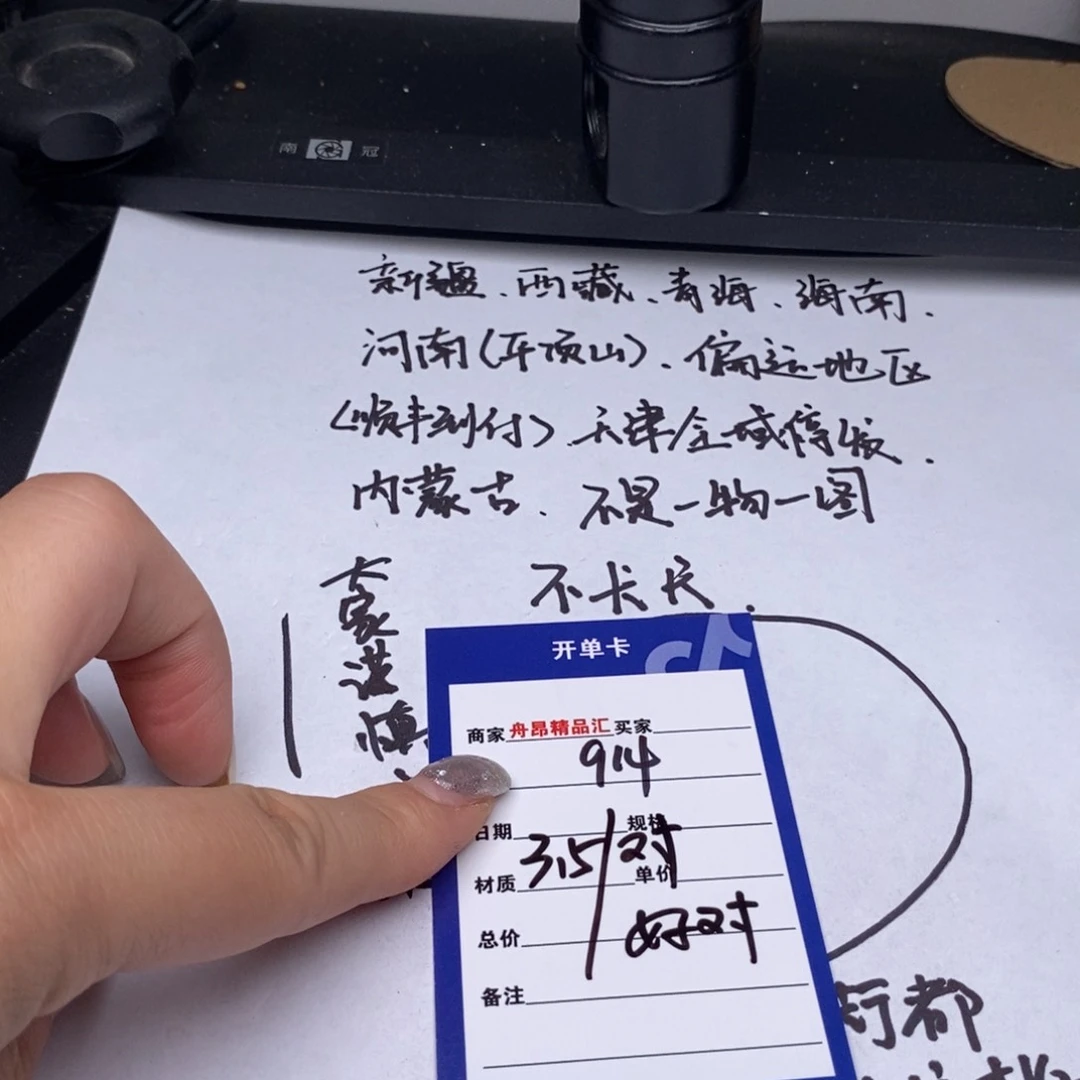 南 冠
新疆、西藏、青海、海南、
河南(平顶山)、偏远地区
(顺丰到付)天津全域停发、
内蒙古、不是一物一图
不卡尺、
大家谨慎
开单卡
商家 舟昂精品汇 买家
914
日期 规格
3.5/对
材质 单价
好对
总价
备注
都